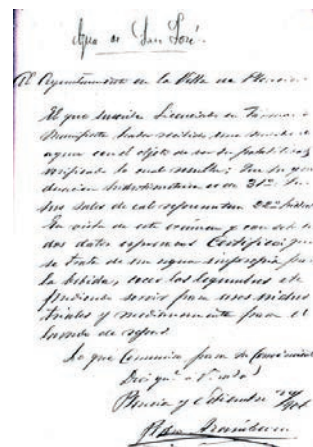 Agua de San José.
Al Ayuntamiento de la Villa de Plencia
El que suscribe Licenciado en Farmacia
Manifiesta haber recibido una muestra de
agua con el objeto de ver su potabilidad
verificado lo cual resulta: Que su gra
duación hidrotimétrica es de 31º. Que
sus sales de cal representan 22º
En vista de este examen y con estos
dos datos Certifica que
se trata de un agua impropia para
la bebida, cocer las legumbres etc
pudiendo servir para usos indus
triales y medianamente para el
lavado de ropas.
Lo que Comunica para su
Dios gue a V.
Plencia y